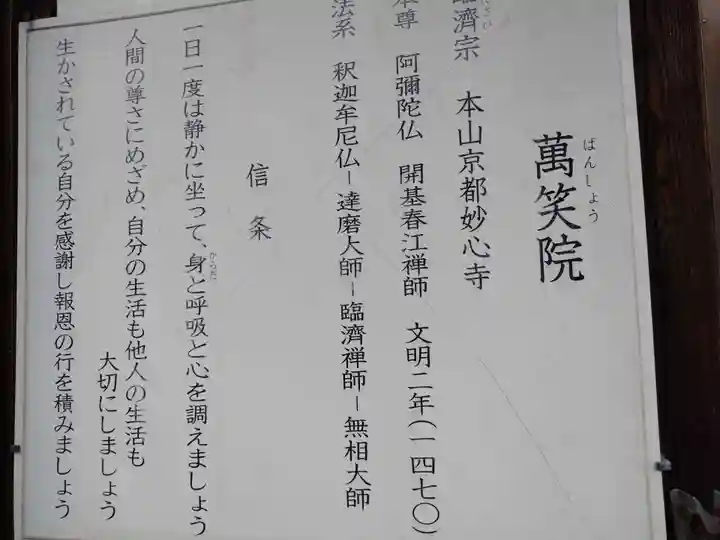 萬笑院
ばんしょう
臨済宗 本山京都妙心寺
本尊 阿彌陀仏 開基春江禅師 文明二年(一四七〇)
法系 釈迦牟尼仏－達磨大師－臨濟禅師－無相大師
信条
一日一度は静かに坐って、身と呼吸と心を調えましょう
からだ
人間の尊さにめざめ、自分の生活も他人の生活も
大切にしましょう
生かされている自分を感謝し報恩の行を積みましょう